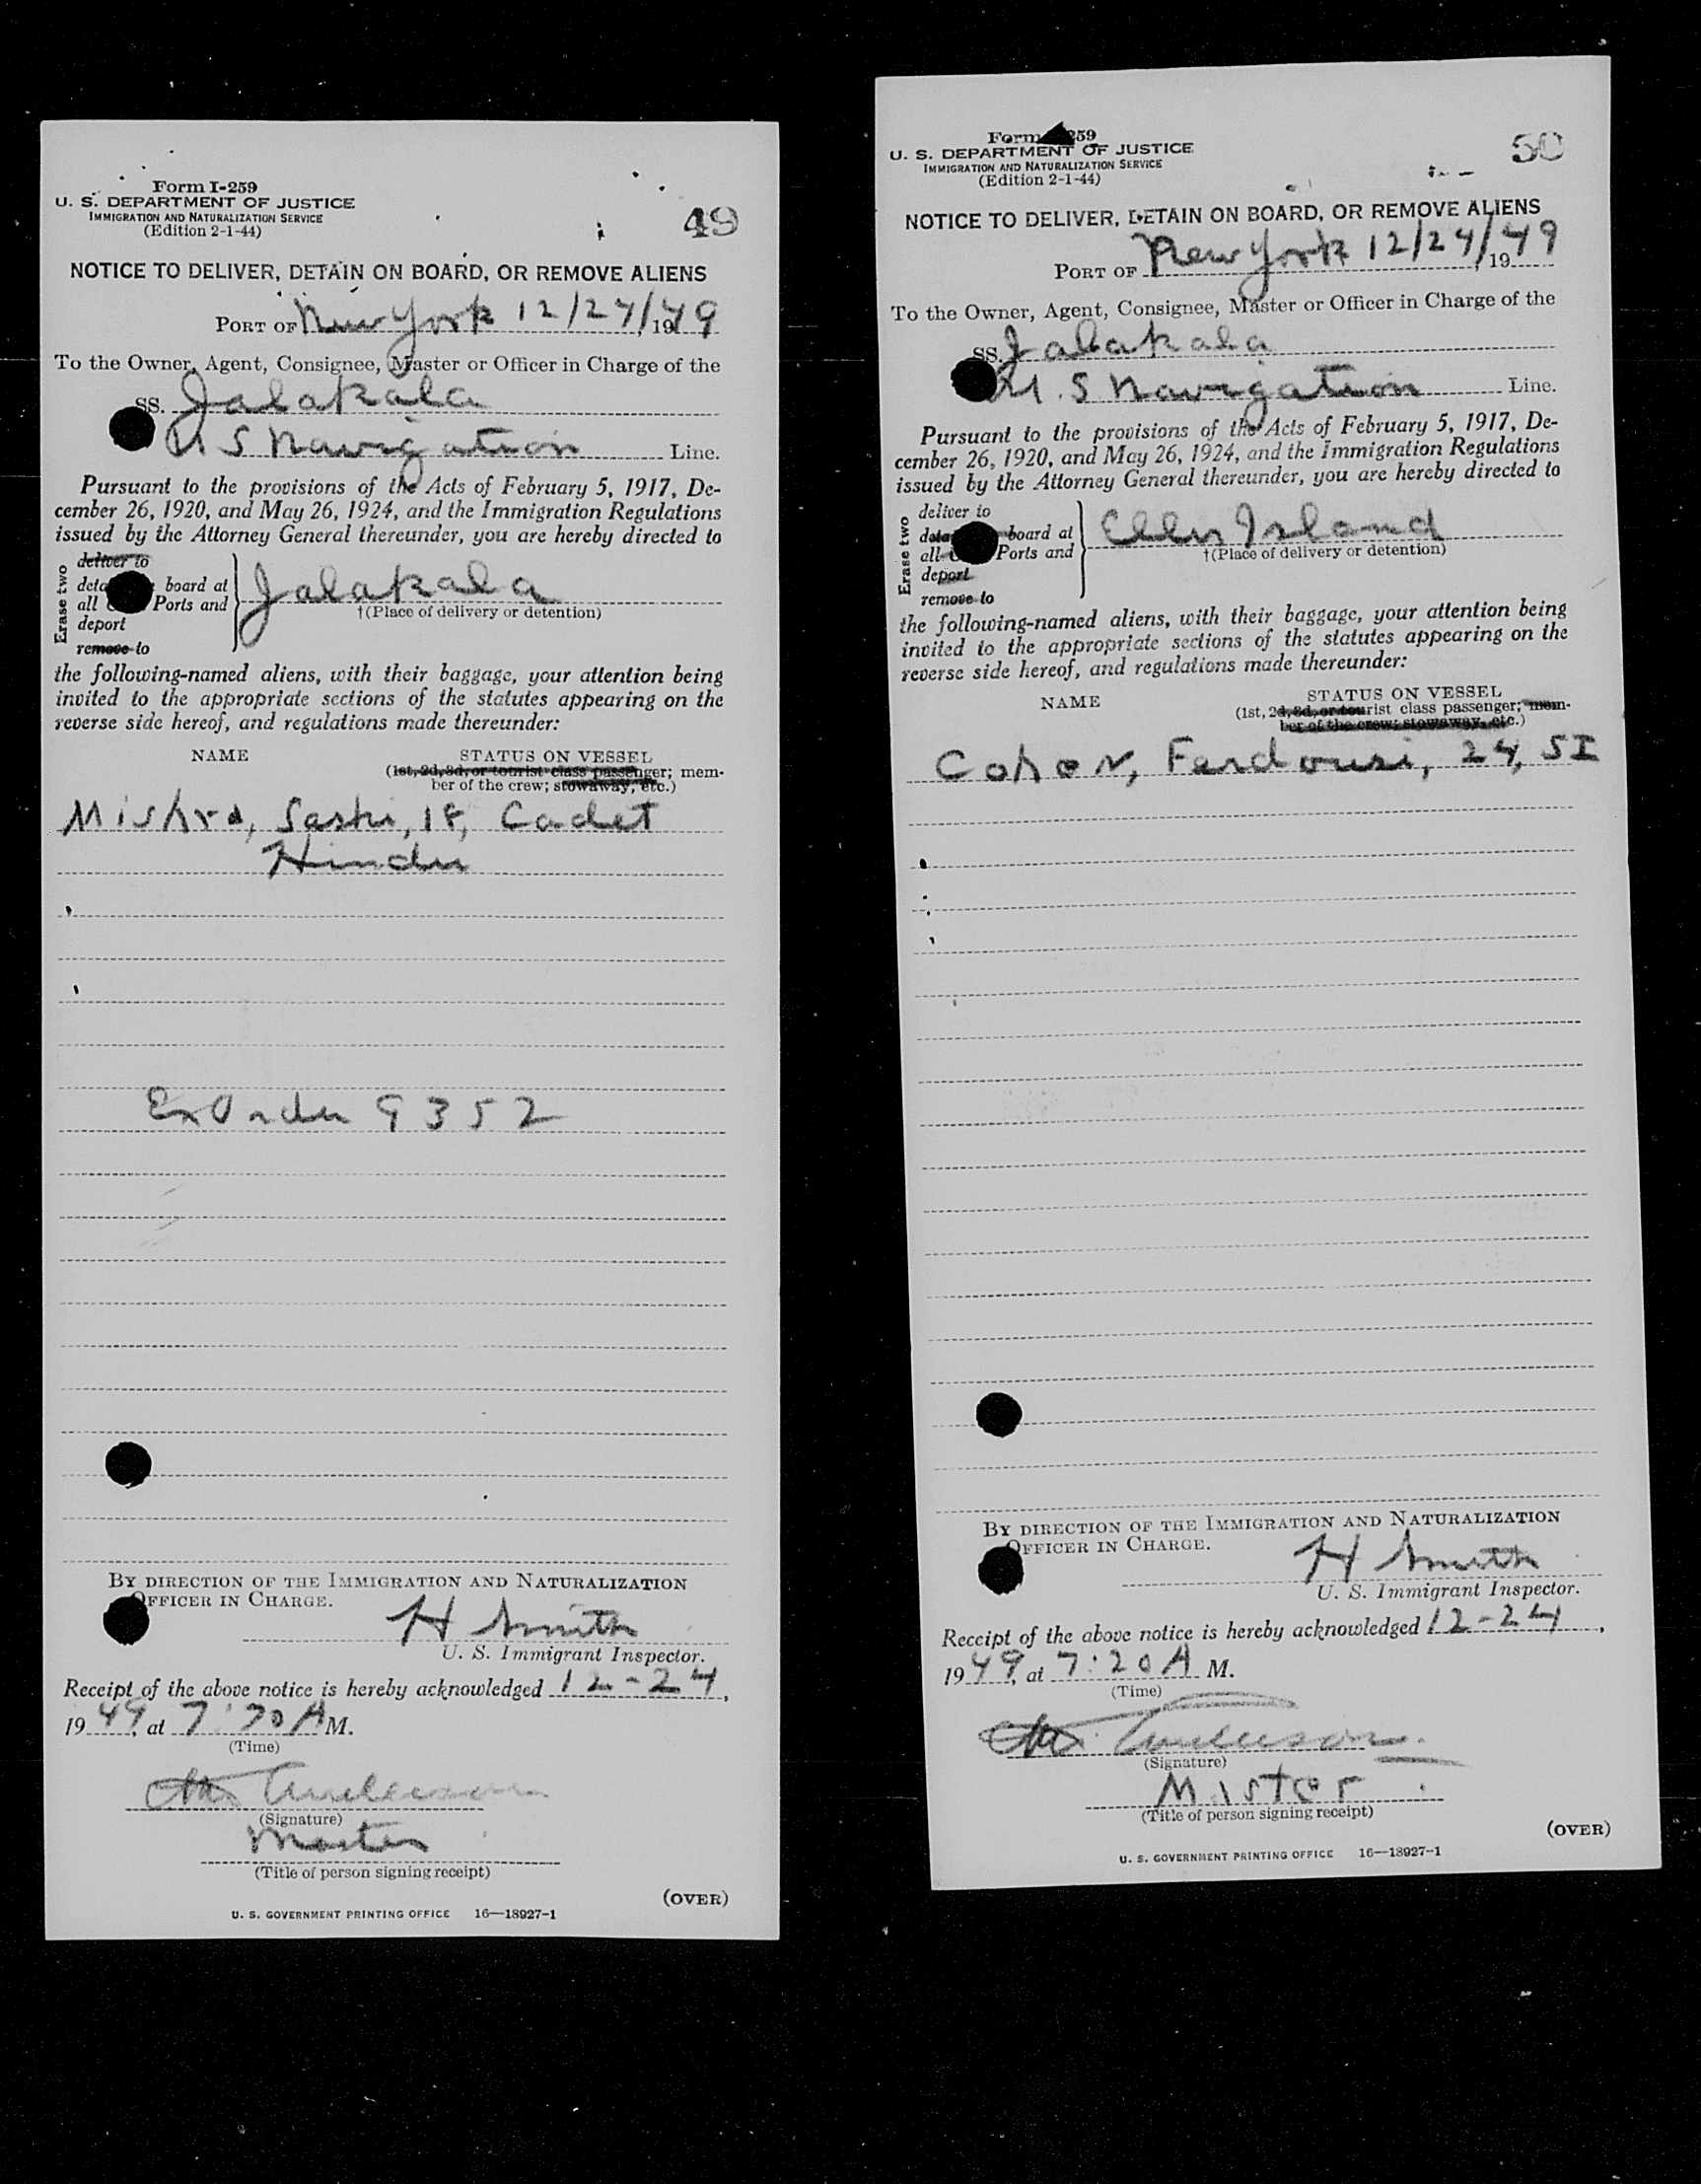 Form I-259
U. S. DEPARTMENT OF JUSTICE
IMMIGRATION AND NATURALIZATION SERVICE
(Edition 2-1-44)
49
NOTICE TO DELIVER, DETAIN ON BOARD, OR REMOVE ALIENS
PORT OF New York 12/24/, 1949
To the Owner, Agent, Consignee, Master or Officer in Charge of the
SS. Jalakala
U S Navigation Line.
Pursuant to the provisions of the Acts of February 5, 1917, De-
cember 26, 1920, and May 26, 1924, and the Immigration Regulations
issued by the Attorney General thereunder, you are hereby directed to
Erase two
deliver to
board at
all Ports and
deport
remove to
Jalakala
†(Place of delivery or detention)
the following-named aliens, with their baggage, your attention being
invited to the appropriate sections of the statutes appearing on the
reverse side hereof, and regulations made thereunder:
NAME STATUS ON VESSEL
(1st, 2d, 3d, or tourist class passenger; mem-
ber of the crew; stowaway, etc.)
Mishra, Sashi, 18, Cadet
Hindu
Ex Order 9352
BY DIRECTION OF THE IMMIGRATION AND NATURALIZATION
OFFICER IN CHARGE.
H Smith
U. S. Immigrant Inspector.
Receipt of the above notice is hereby acknowledged 12-24,
1949, at 7:20 A M.
(Time)
Anderson
(Signature)
Master
(Title of person signing receipt)
(OVER)
U. S. GOVERNMENT PRINTING OFFICE 16—18927-1
Form 259
U. S. DEPARTMENT OF JUSTICE
IMMIGRATION AND NATURALIZATION SERVICE
(Edition 2-1-44)
50
NOTICE TO DELIVER, DETAIN ON BOARD, OR REMOVE ALIENS
PORT OF New York 12/24/, 1949
To the Owner, Agent, Consignee, Master or Officer in Charge of the
SS. Jalakala
U. S Navigation Line.
Pursuant to the provisions of the Acts of February 5, 1917, De-
cember 26, 1920, and May 26, 1924, and the Immigration Regulations
issued by the Attorney General thereunder, you are hereby directed to
Erase two
deliver to
board at
all Ports and
deport
remove to
Ellis Island
†(Place of delivery or detention)
the following-named aliens, with their baggage, your attention being
invited to the appropriate sections of the statutes appearing on the
reverse side hereof, and regulations made thereunder:
NAME STATUS ON VESSEL
(1st, 2d, 3d, or tourist class passenger; mem-
ber of the crew; stowaway, etc.)
Cohor, Ferdousi, 24, SI
BY DIRECTION OF THE IMMIGRATION AND NATURALIZATION
OFFICER IN CHARGE.
H Smith
U. S. Immigrant Inspector.
Receipt of the above notice is hereby acknowledged 12-24,
1949, at 7:20 A M.
(Time)
Anderson
(Signature)
Master
(Title of person signing receipt)
(OVER)
U. S. GOVERNMENT PRINTING OFFICE 16—18927-1